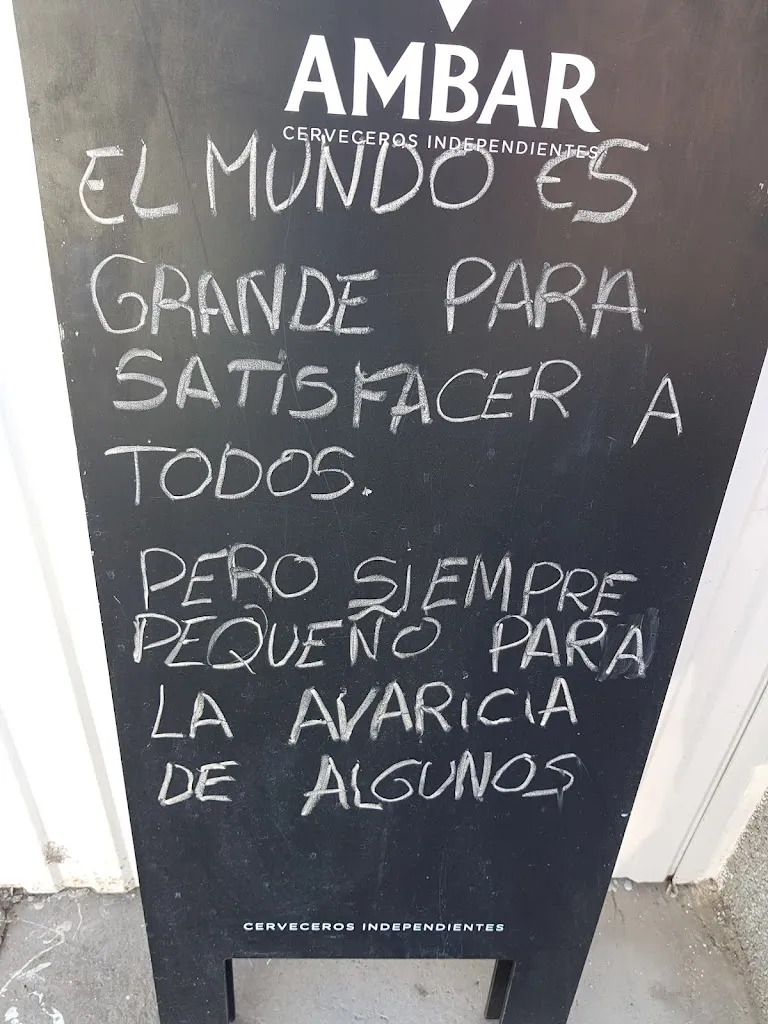 AMBAR
CERVECEROS INDEPENDIENTES
EL MUNDO ES
GRANDE PARA
SATISFACER A
TODOS.
PERO SIEMPRE
PEQUEÑO PARA
LA AVARICIA
DE ALGUNOS
CERVECEROS INDEPENDIENTES